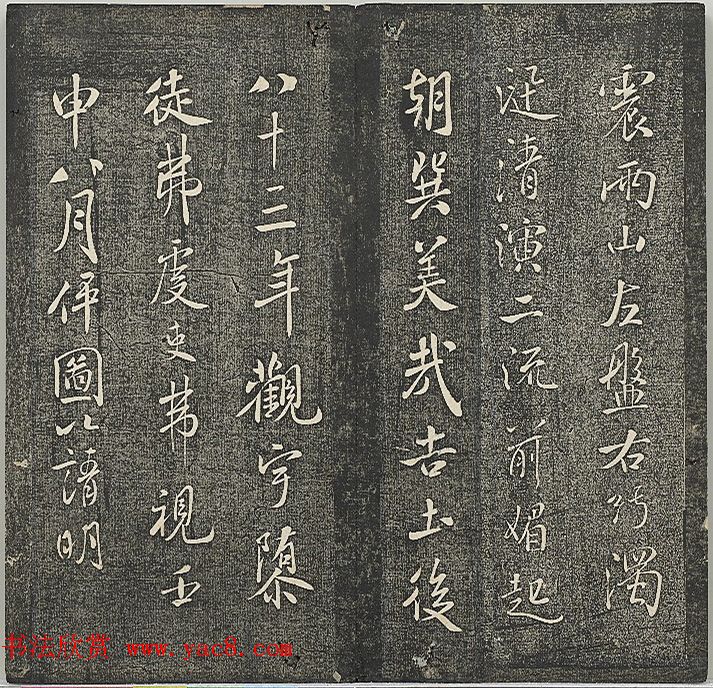 震兩山左盤右紆濁
涇清演二流前媚起
朝巽美哉吉土後
八十三年觀宇隳
徒弗虔吏弗視壬
申八月伻圖以請明
书法欣赏 www.yac8.com